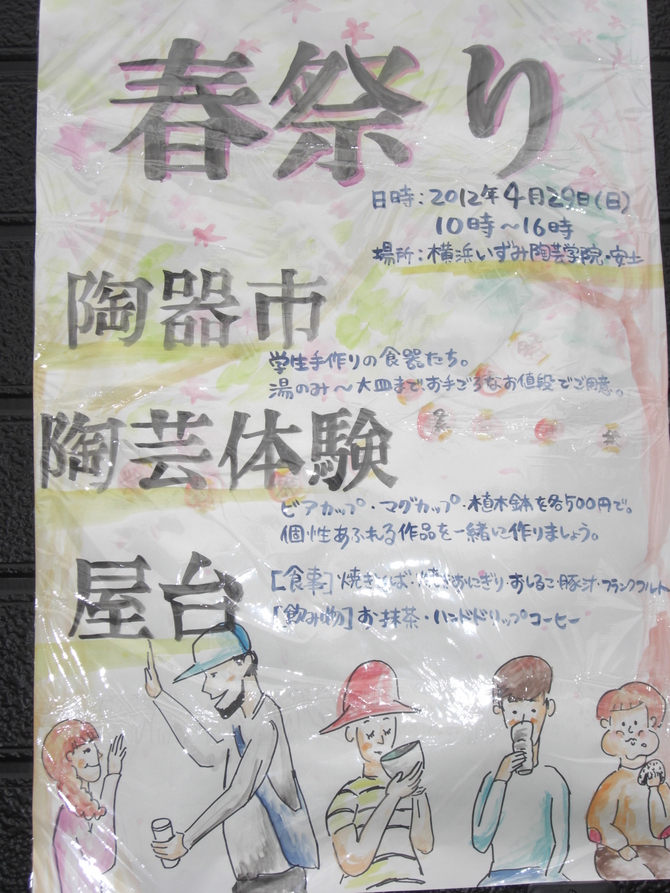 春祭り
日時：2012年4月29日(日)
10時〜16時
場所：横浜いずみ陶芸学院・安土
陶器市
学生手作りの食器たち。
湯のみ〜大皿までお手ごろなお値段でご用意。
陶芸体験
ビアカップ・マグカップ・植木鉢を各500円で。
個性あふれる作品を一緒に作りましょう。
屋台
[食事]焼きそば・焼きおにぎり・おしるこ・豚汁・フランクフルト
[飲み物]お抹茶・ハンドドリップコーヒー